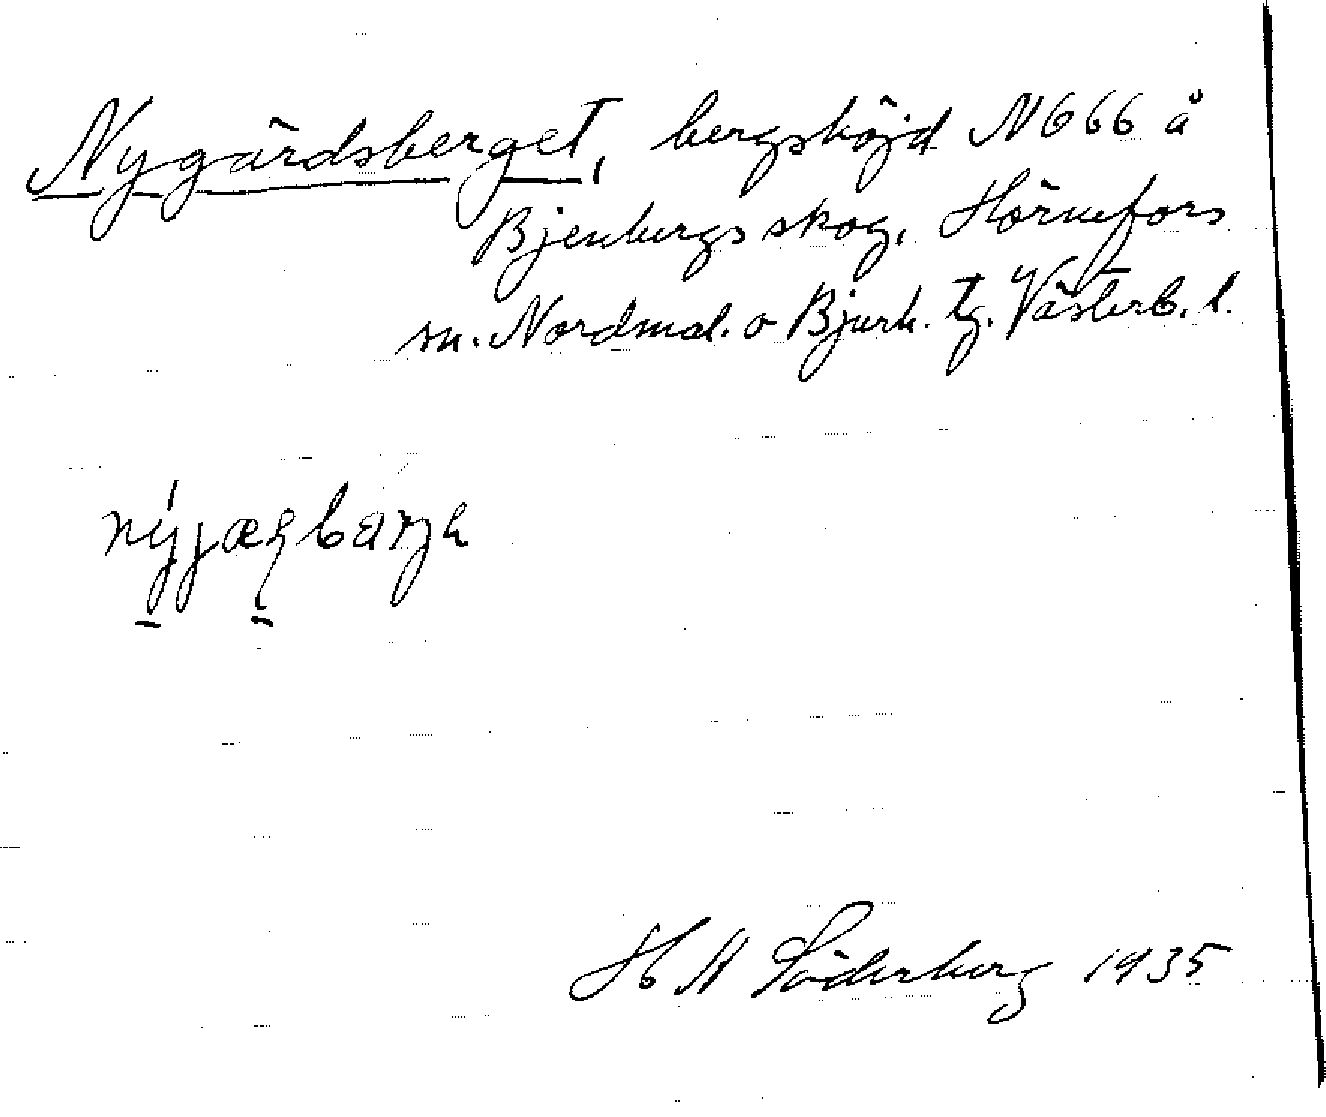 Nygårdsberget, bergshöjd N 666 å
Bjenbergs skog, Hörnefors
sn. Nordmal. o Bjurh. tg. Västerb. l.
nýjæṣbärjh
H A Söderberg 1935